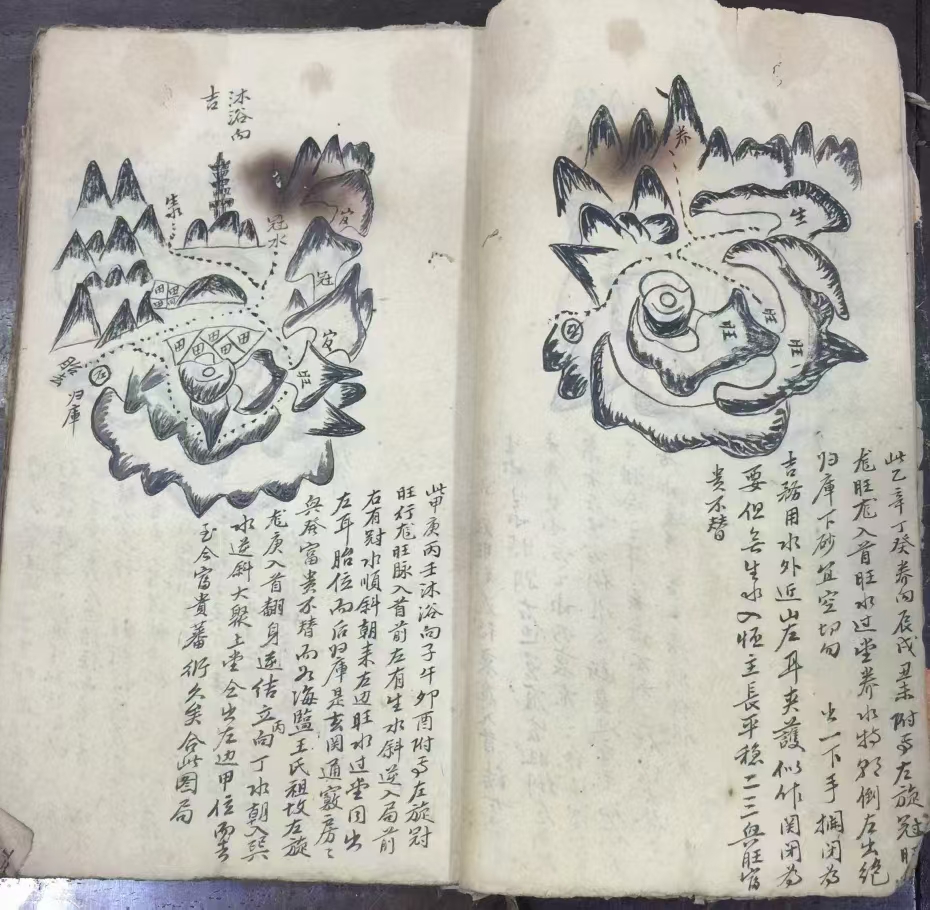 此乙辛丁癸养向辰戌丑未附焉左旋冠旺
龙旺龙入首旺水过堂养水特朝倒左出绝
归庫下砂宜空切勿出一下手摑闭为
吉務用水外近山左耳夹護似作関闭为
要但無生水入恒主長平稳二三興旺富
貴不替
养
生
旺
旺
旺
沐浴向
吉
生水
冠水
官
冠
官
旺
田
田
田
田
田
归庫
此甲庚丙壬沐浴向子午卯酉附焉左旋冠
旺行龙旺脉入首前左有生水斜逆入局前
右有冠水順斜朝来左边旺水过堂同出
左耳胎位而后归庫是玄関通竅房〻
興發富貴不替而如海監王氏祖坟左旋
龙庚入首翻身逆结立丙向丁水朝入巽
水逆斜大聚上堂仝出左边甲位而去
至今富貴蕃衍久矣合此图局